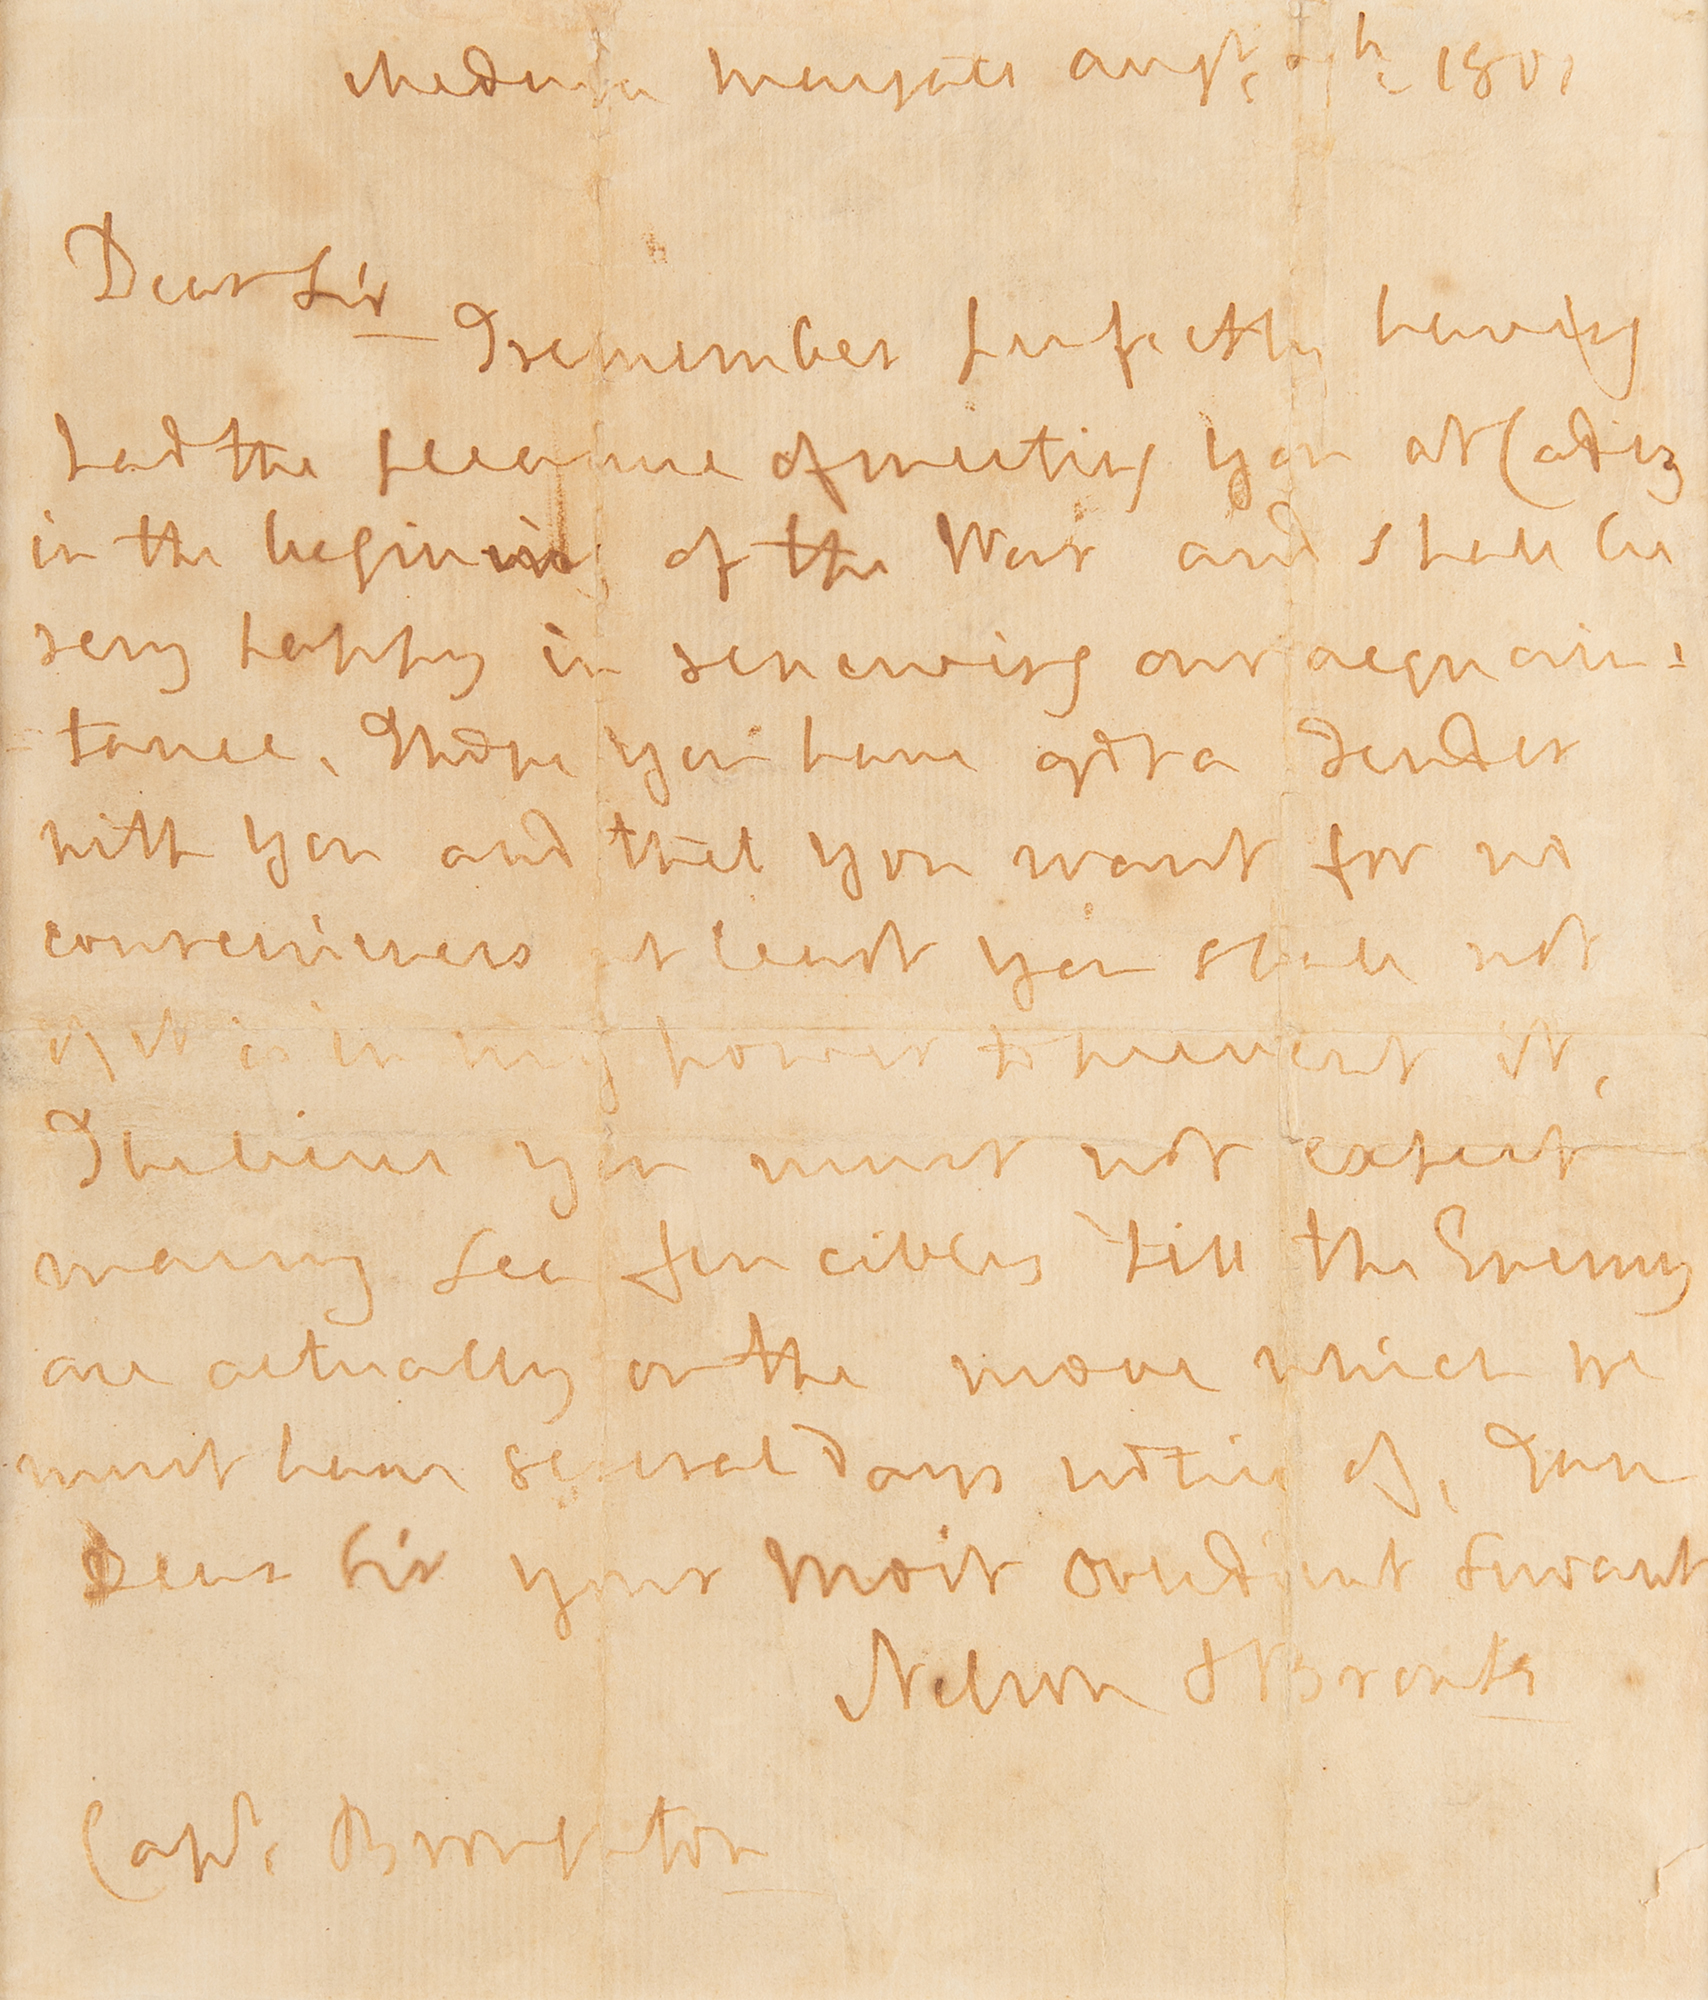 Medusa Margate Augt. 1801
Dear Sir
I remember perfectly having
had the pleasure of meeting you at Cadiz
in the begining of the War and shall be
very happy in renewing our acquain-
tance, I hope you have got a Tender
with you and that you want for no
conveniences at least you shall not
if it is in my power to prevent it,
I believe you must not expect
many Sea fencibles 'till the Enemy
are actually on the move which we
must have several days notice of, I am
Dear Sir your most obedient Servant
Nelson & Bronte
Capt. Broughton